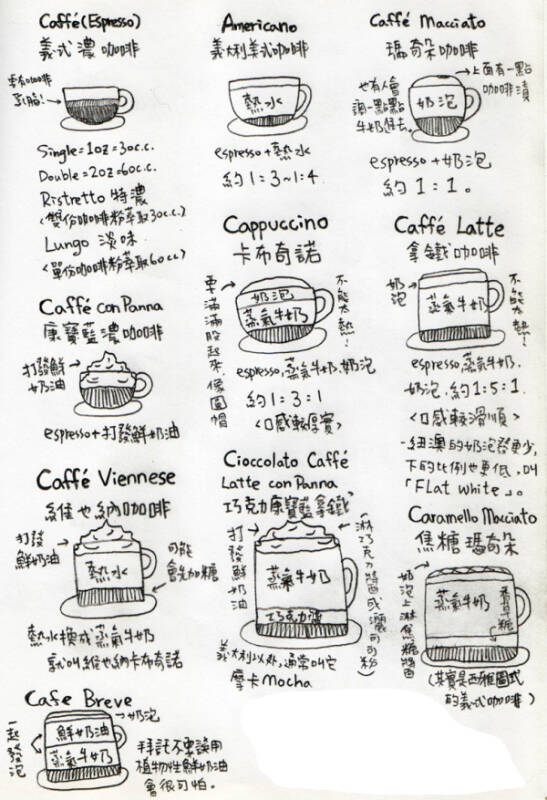 Caffé(Espresso)
義式濃咖啡
要有咖啡
乳脂!
Single=1oz=30c.c.
Double=2oz=60c.c.
Ristretto 特濃
(雙份咖啡粉萃取30c.c.)
Lungo 淡味
(單份咖啡粉萃取60cc)
Americano
義大利美式咖啡
熱水
espresso+熱水
約1:3~1:4
Caffé Macciato
瑪奇朵咖啡
上面有一點
咖啡漬
奶泡
也有人會
調一點點
牛奶進去。
espresso+奶泡
約1:1。
Cappuccino
卡布奇諾
要滿滿股起來像圓帽
奶泡
蒸氣牛奶
不能太熱!
espresso,蒸氣牛奶,奶泡
約1:3:1
<口感較厚實>
Caffé Latte
拿鐵咖啡
奶泡
蒸氣牛奶
不能太熱!
espresso,蒸氣牛奶,
奶泡,約1:5:1
<口感較滑順>
-紐澳的奶泡發更少,
下的比例也更低,叫
「Flat White」。
Caffé con Panna
康寶藍濃咖啡
打發鮮
奶油
espresso+打發鮮奶油
Caffé Viennese
維也納咖啡
打發
鮮奶油
熱水
可能
會先加糖
熱水換成蒸氣牛奶
就叫維也納卡布奇諾
Cioccolato Caffé
Latte con Panna
巧克力康寶藍拿鐵
打發鮮奶油
蒸氣牛奶
巧克力醬
(淋巧克力醬或灑可可粉)
義大利以外,通常叫它
摩卡Mocha
Caramello Macciato
焦糖瑪奇朵
奶泡上淋焦糖醬
蒸氣牛奶
香草糖
(其實是西雅圖式
的義式咖啡)
Cafe Breve
奶泡
鮮奶油
蒸氣牛奶
一起發泡
拜託不要誤用
植物性鮮奶油
會很可怕。